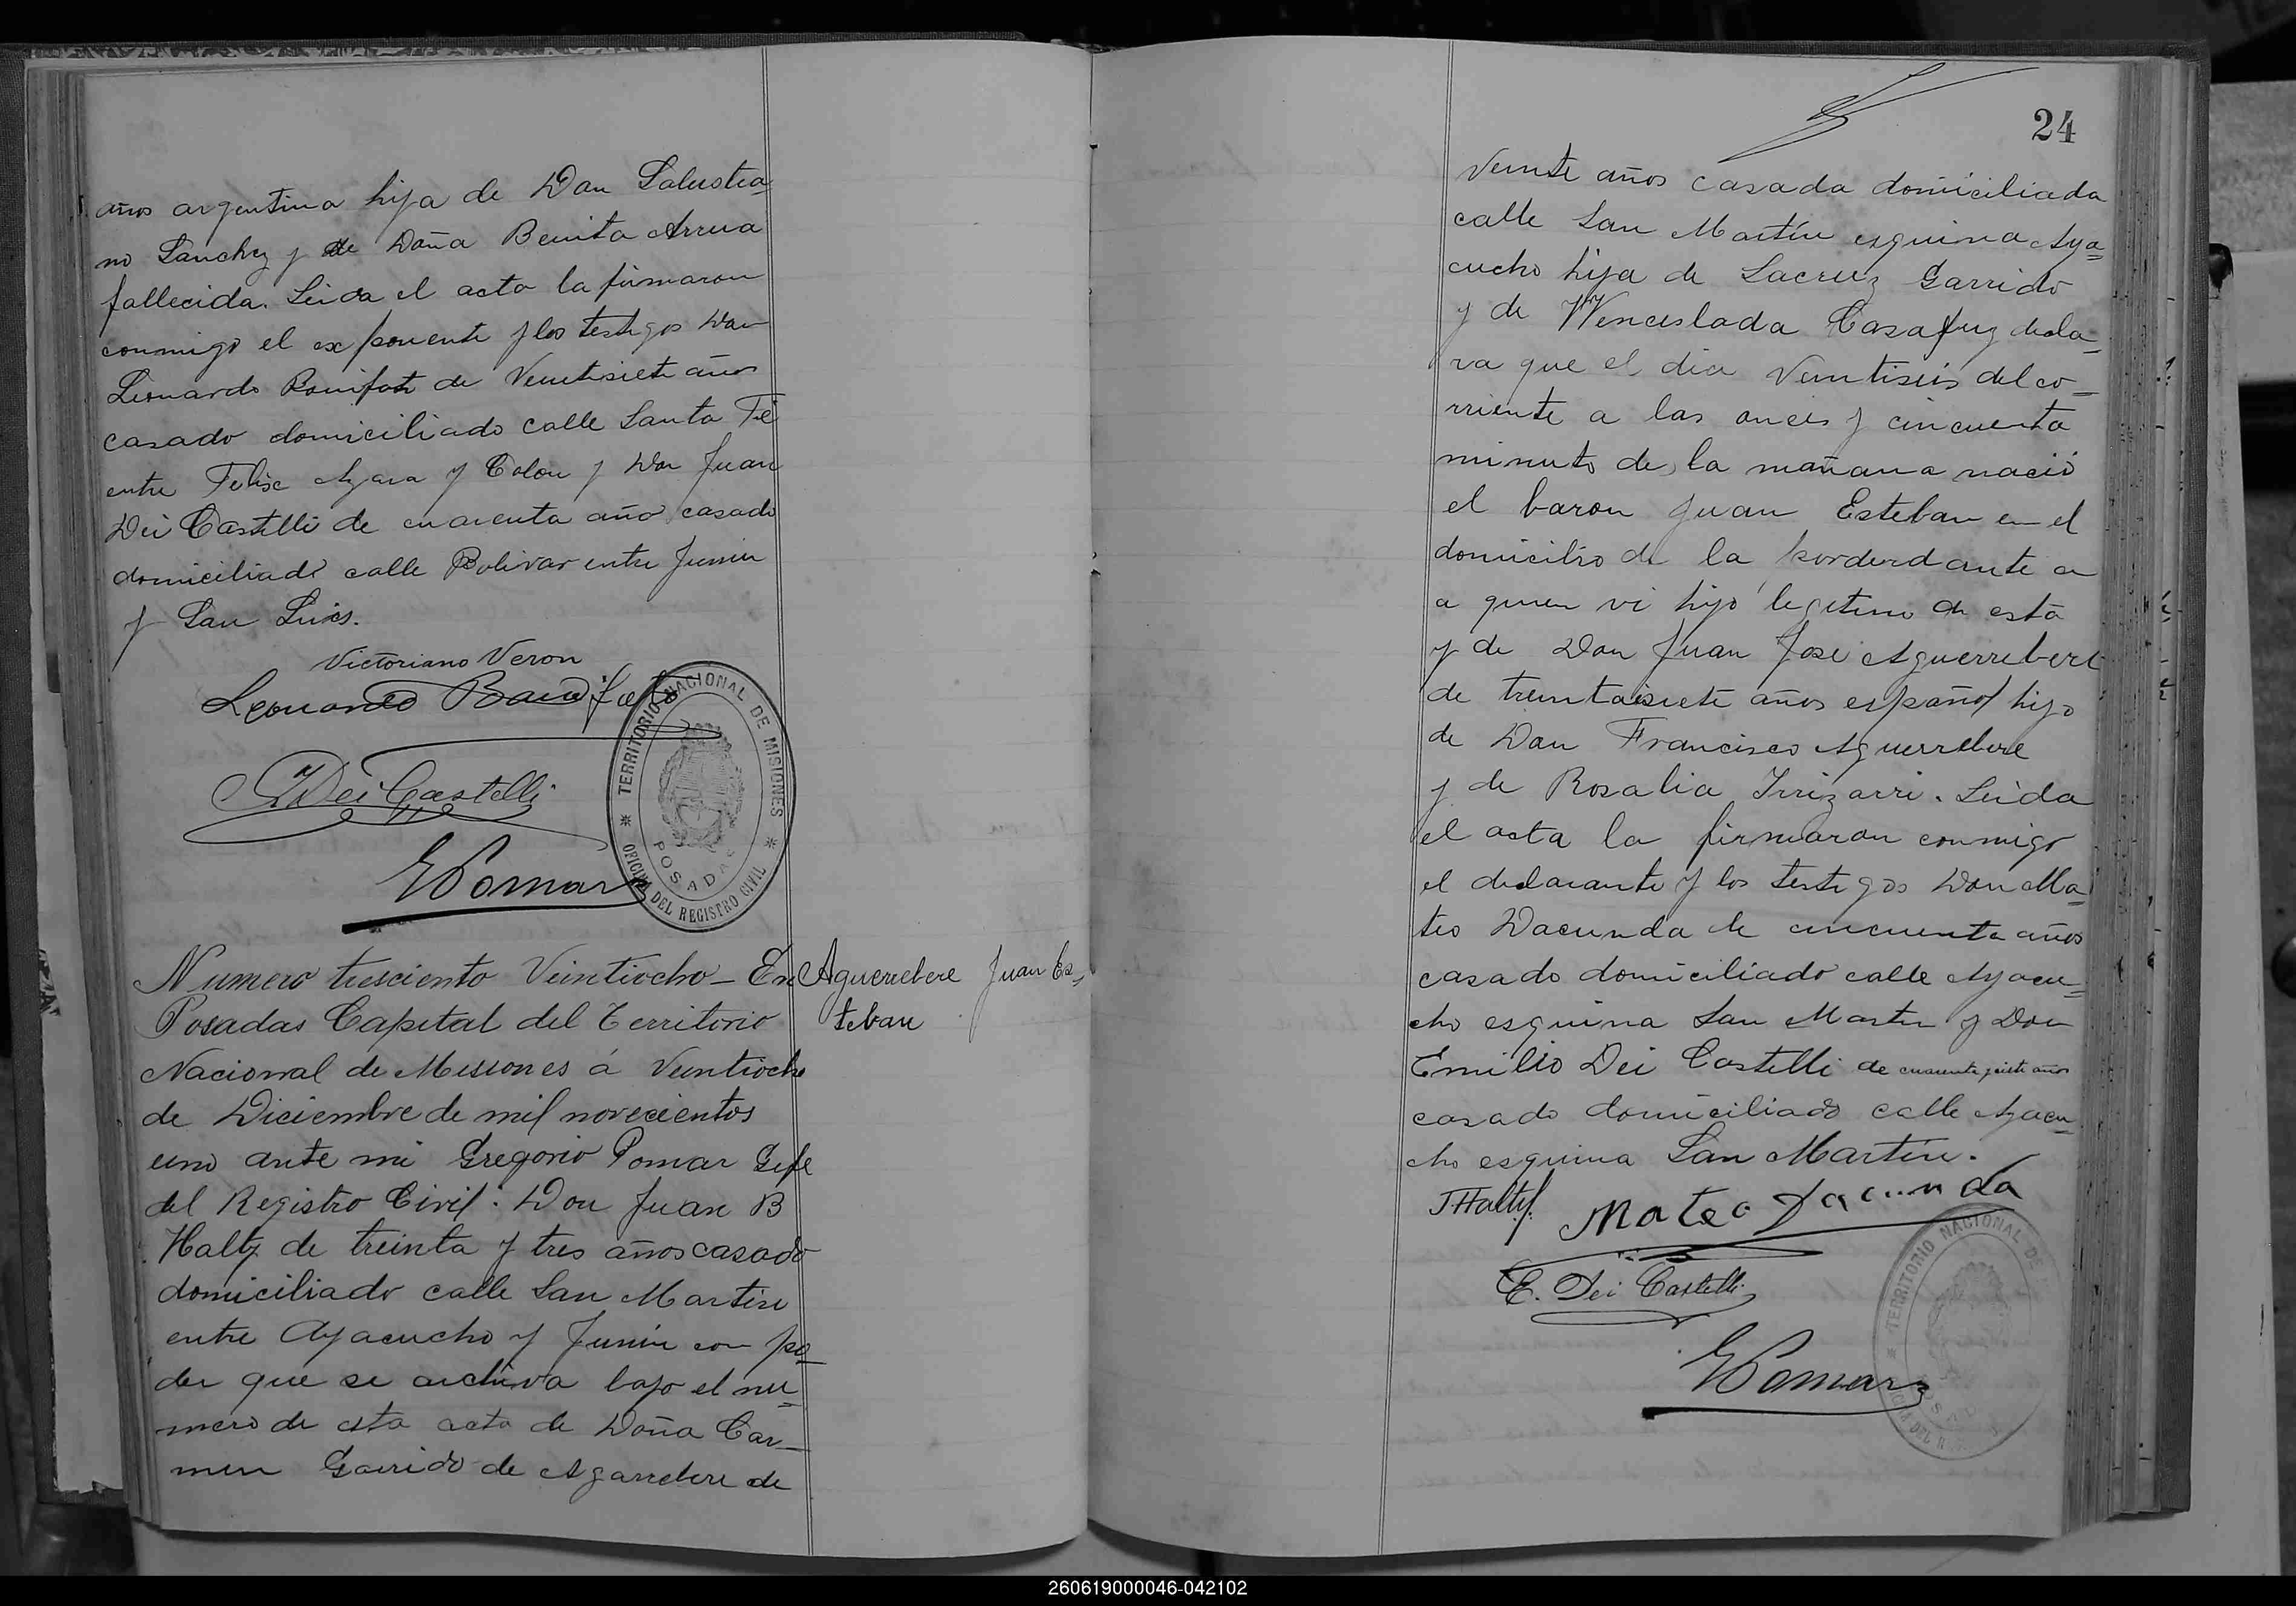 años argentina hija de Don Salustia
no Sanchez y de Doña Benita Arrua
fallecida. Leida el acta la firmaron
conmigo el exponente y los testigos Don
Leonardo Bonifat de Veintisiete años
casado domiciliado calle Santa Fé
entre Felix Azara y Colon y Don Juan
Dei Castelli de cuarenta año casado
domiciliado calle Bolivar entre Junin
y San Luis.
Victoriano Veron
Leonardo
JDei Castelli
GPomar
TERRITORIO NACIONAL DE MISIONES
POSADAS
OFICINA DEL REGISTRO CIVIL
Numero tresciento Veintiocho – En
Aguerrebere Juan Es=
teban
Posadas Capital del Territorio
Nacional de Misiones á Veintiocho
de Diciembre de mil novecientos
uno ante mi Gregorio Pomar Gefe
del Registro Civil: Don Juan B
Haltz de treinta y tres años casado
domiciliado calle San Martin
entre Ayacucho y Junin con po=
der que se archiva bajo el nu=
mero de esta acta de Doña Car–
men Garrido de Agarrebere de
24
Veinte años casada domiciliada
calle San Martin esquina Aya=
cucho hija de Lacruz Garrido
y de Wenceslada Casafuz decla=
ra que el dia Veintiseis del co=
rriente a las onces y cincuenta
minuto de la mañana nació
el baron Juan Esteban en el
domicilio de la
a quien vi hijo legitimo de esta
y de Don Juan José Aguerrebere
de treintaisiete años español hijo
de Don Francisco Aguerrebere
y de Rosalia Irrizarri. Leida
el acta la firmaron conmigo
el declarante y los testigos Don Ma=
teo Dacunda de cincuenta años
casado domiciliado calle Ayacu=
cho esquina San Martin y Don
Emilio Dei Castelli de cuarenta y siete años
casado domiciliado calle Ayacu=
cho esquina San Martin.
JHaltz
Mateo Dacunda
E. Dei Castelli
GPomar
TERRITORIO NACIONAL DE
260619000046-042102